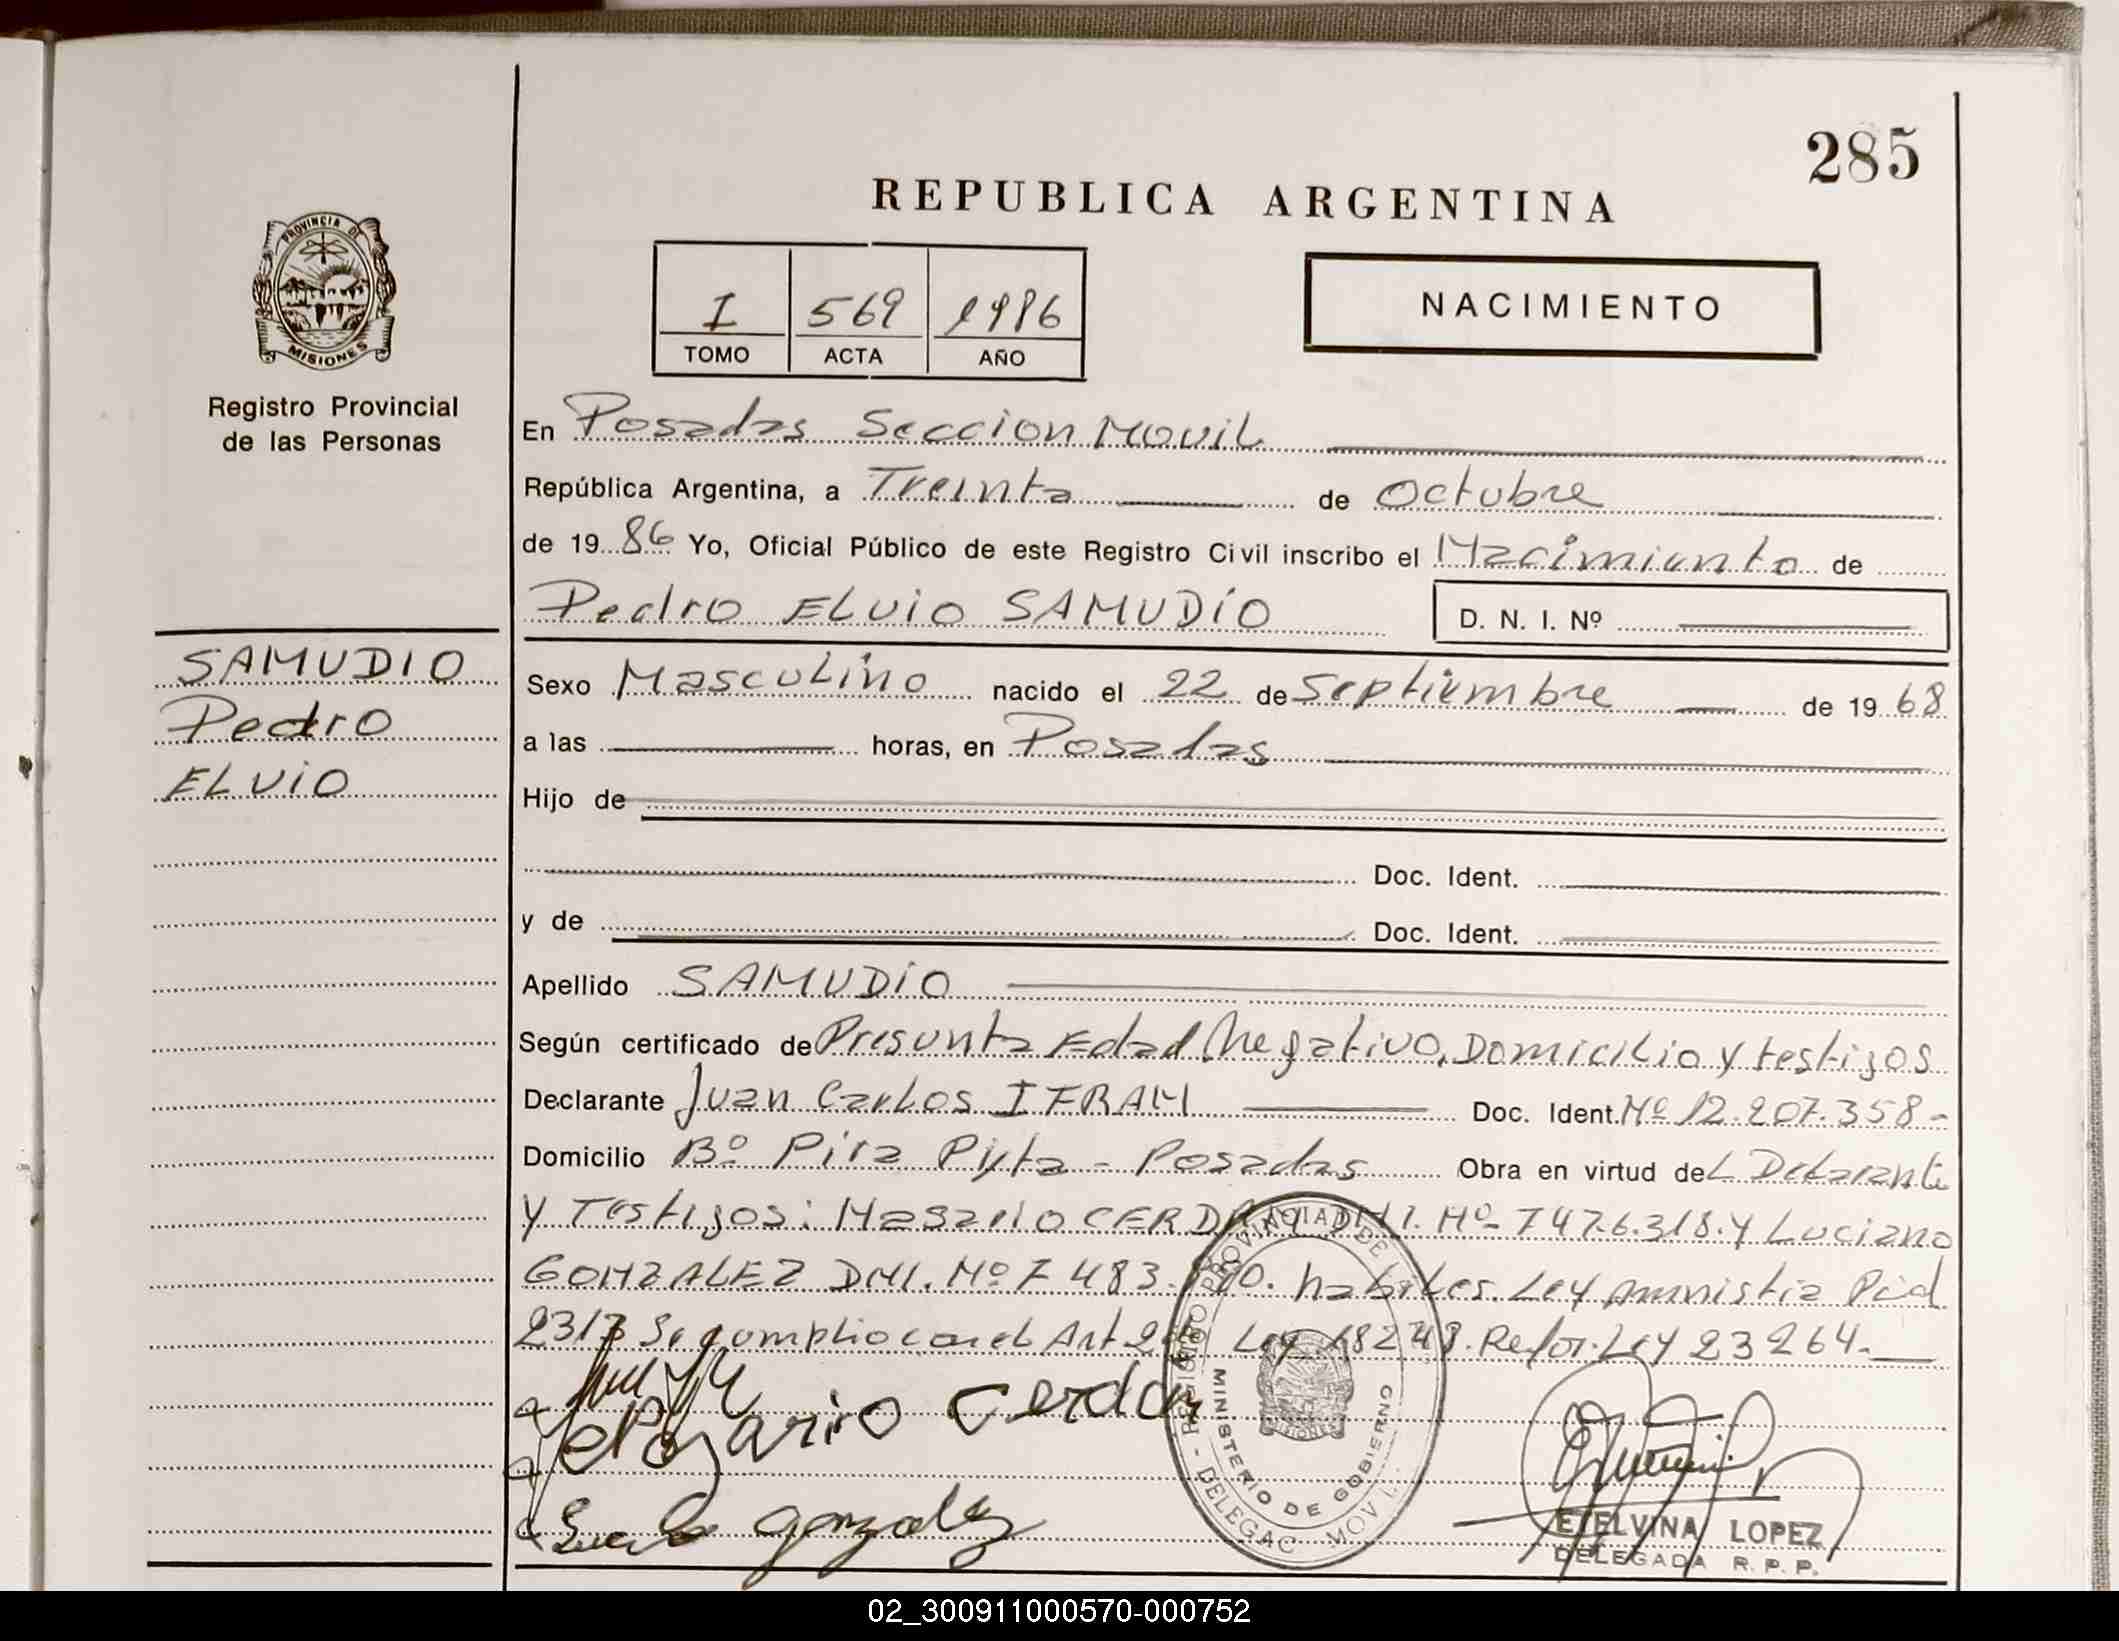 285
REPUBLICA ARGENTINA
PROVINCIA DE
MISIONES
I 569 1986
TOMO ACTA AÑO
NACIMIENTO
Registro Provincial
de las Personas
En Posadas Seccion Movil
República Argentina, a Treinta de Octubre
de 1986 Yo, Oficial Público de este Registro Civil inscribo el Nacimiento de
Pedro ELVIO SAMUDIO D. N. I. Nº
SAMUDIO
Pedro
ELVIO
Sexo Masculino nacido el 22 de Septiembre de 1968
a las horas, en Posadas
Hijo de
Doc. Ident.
y de Doc. Ident.
Apellido SAMUDIO
Según certificado de Presunta Edad, Negativo, Domicilio y testigos
Declarante Juan Carlos IFRAN Doc. Ident. Nº 12.207.358-
Domicilio Bº Pira Pyta - Posadas Obra en virtud del Declarante
y Testigos: CERDAN DNI. Nº 7476.318. y Luciano
GONZALEZ DNI. Nº 7483. habiles. Ley Amnistia
Se cumplio con el Art Ley 18248. Refor. Ley 23264.
Cerdan
gonzalez
REGISTRO PROVINCIAL DE
MINISTERIO DE GOBIERNO
DELEGAC MOVIL
ETELVINA LOPEZ
DELEGADA R. P. P.
02_300911000570-000752